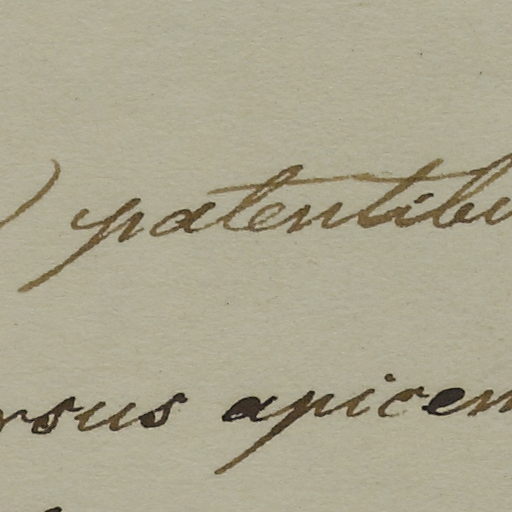 ) patentibu
rsus apicem